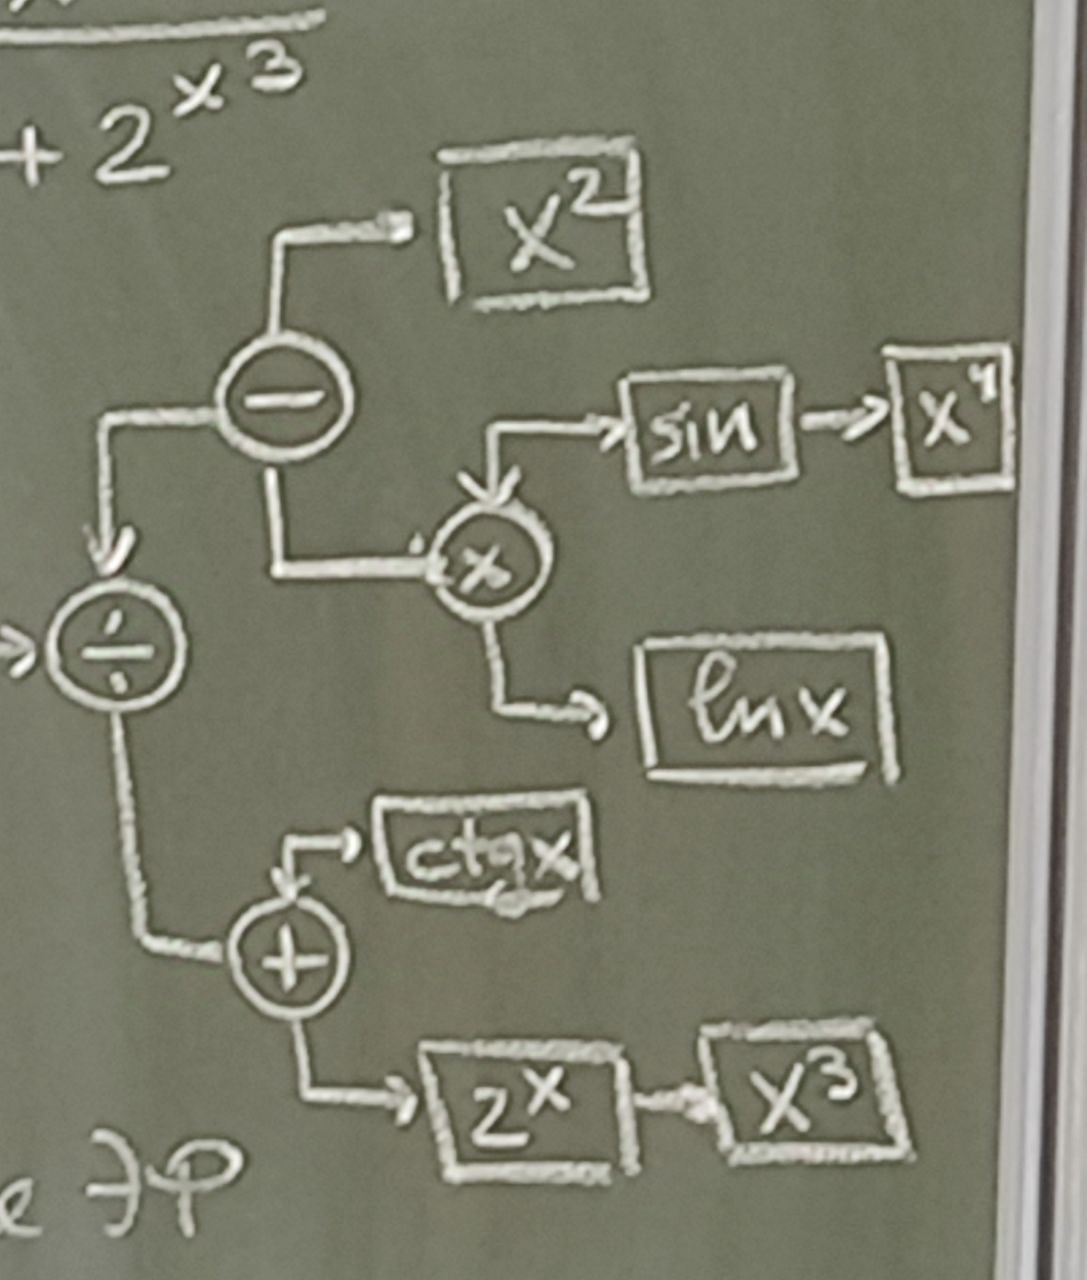 + 2^x^3
x²
−
sin
x⁴
×
÷
ln x
ctgx
+
2^x
x³
ЭФ